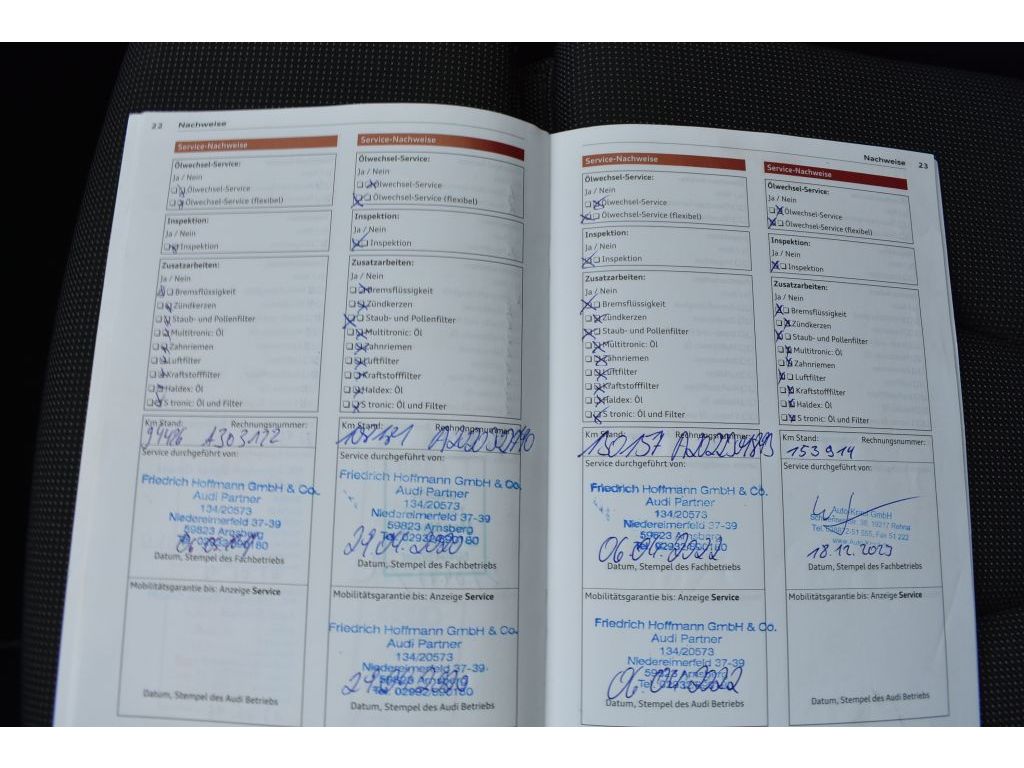 22 Nachweise
Service-Nachweise
Ölwechsel-Service:
Ja / Nein
Ölwechsel-Service
Ölwechsel-Service (flexibel)
Inspektion:
Ja / Nein
Inspektion
Zusatzarbeiten:
Ja / Nein
Bremsflüssigkeit
Zündkerzen
Staub- und Pollenfilter
Multitronic: Öl
Zahnriemen
Luftfilter
Kraftstofffilter
Haldex: Öl
S tronic: Öl und Filter
Km Stand: Rechnungsnummer:
Service durchgeführt von:
Friedrich Hoffmann GmbH & Co.
Audi Partner
134/20573
Niedereimerfeld 37-39
59823 Arnsberg
Datum, Stempel des Fachbetriebs
Mobilitätsgarantie bis: Anzeige Service
Datum, Stempel des Audi Betriebs
Service-Nachweise
Ölwechsel-Service:
Ja / Nein
Ölwechsel-Service
Ölwechsel-Service (flexibel)
Inspektion:
Ja / Nein
Inspektion
Zusatzarbeiten:
Ja / Nein
Bremsflüssigkeit
Zündkerzen
Staub- und Pollenfilter
Multitronic: Öl
Zahnriemen
Luftfilter
Kraftstofffilter
Haldex: Öl
S tronic: Öl und Filter
Km Stand: Rechnungsnummer:
Service durchgeführt von:
Friedrich Hoffmann GmbH & Co.
Audi Partner
134/20573
Niedereimerfeld 37-39
59823 Arnsberg
Tel. 02932/990180
Datum, Stempel des Fachbetriebs
Mobilitätsgarantie bis: Anzeige Service
Friedrich Hoffmann GmbH & Co.
Audi Partner
134/20573
Niedereimerfeld 37-39
59823 Arnsberg
Tel. 02932/990180
Datum, Stempel des Audi Betriebs
Nachweise 23
Service-Nachweise
Ölwechsel-Service:
Ja / Nein
Ölwechsel-Service
Ölwechsel-Service (flexibel)
Inspektion:
Ja / Nein
Inspektion
Zusatzarbeiten:
Ja / Nein
Bremsflüssigkeit
Zündkerzen
Staub- und Pollenfilter
Multitronic: Öl
Zahnriemen
Luftfilter
Kraftstofffilter
Haldex: Öl
S tronic: Öl und Filter
Km Stand: Rechnungsnummer:
150157
Service durchgeführt von:
Friedrich Hoffmann GmbH & Co.
Audi Partner
134/20573
Niedereimerfeld 37-39
59823 Arnsberg
Tel. 02932/990180
06.04.2022
Datum, Stempel des Fachbetriebs
Mobilitätsgarantie bis: Anzeige Service
Friedrich Hoffmann GmbH & Co.
Audi Partner
134/20573
Niedereimerfeld 37-39
59823 Arnsberg
06.04.2022
Datum, Stempel des Audi Betriebs
Service-Nachweise
Ölwechsel-Service:
Ja / Nein
Ölwechsel-Service
Ölwechsel-Service (flexibel)
Inspektion:
Ja / Nein
Inspektion
Zusatzarbeiten:
Ja / Nein
Bremsflüssigkeit
Zündkerzen
Staub- und Pollenfilter
Multitronic: Öl
Zahnriemen
Luftfilter
Kraftstofffilter
Haldex: Öl
S tronic: Öl und Filter
Km Stand: Rechnungsnummer:
153914
Service durchgeführt von:
GmbH
38, 19217 Rehna
18.12.2023
Datum, Stempel des Fachbetriebs
Mobilitätsgarantie bis: Anzeige Service
Datum, Stempel des Audi Betriebs